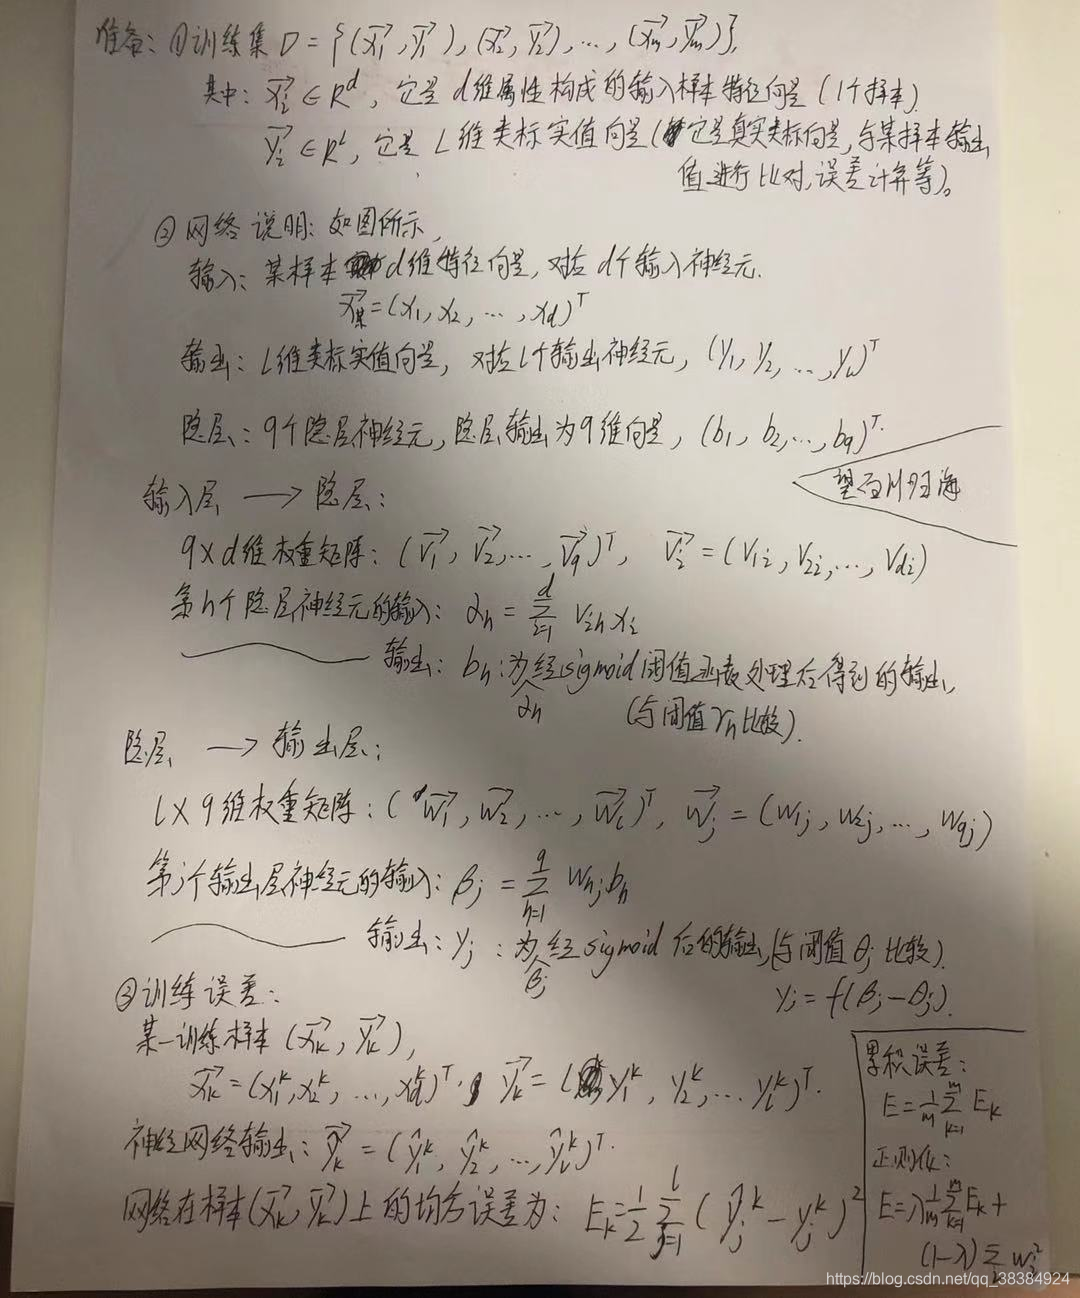 准备: ①训练集 D = {(x₁, y₁), (x₂, y₂), ..., (xₘ, yₘ)},
其中: xᵢ ∈ Rᵈ, 它是 d维属性构成的输入样本特征向量 (1个样本).
yᵢ ∈ Rˡ, 它是 l 维类标实值向量 (它是真实类标向量, 与某样本输出
值进行比对, 误差计算等)。
② 网络说明: 如图所示,
输入: 某样本 d维特征向量, 对应 d个输入神经元.
x某 = (x₁, x₂, ..., x_d)ᵀ
输出: l维类标实值向量, 对应l个输出神经元, (y₁, y₂, ..., y_l)ᵀ
隐层: q个隐层神经元, 隐层输出为q维向量, (b₁, b₂, ..., b_q)ᵀ.
望百川归海
输入层 → 隐层:
q×d维权重矩阵: (v₁, v₂, ..., v_q)ᵀ, vᵢ = (v₁ᵢ, v₂ᵢ, ..., v_dᵢ)
第h个隐层神经元的输入: αₕ = Σᵢ₌₁ᵈ vᵢₕ xᵢ
输出: bₕ: 为αₕ经sigmoid阈值函数处理后得到的输出,
(与阈值γₕ比较).
隐层 → 输出层:
l×q维权重矩阵: (w₁, w₂, ..., w_l)ᵀ, wⱼ = (w₁ⱼ, w₂ⱼ, ..., w_qⱼ)
第j个输出层神经元的输入: βⱼ = Σₕ₌₁^q wₕⱼ bₕ
输出: yⱼ: 为βⱼ经sigmoid后的输出, (与阈值θⱼ比较).
yⱼ = f(βⱼ − θⱼ).
③训练误差:
某一训练样本 (xₖ, yₖ),
xₖ = (x₁ᵏ, x₂ᵏ, ..., x_dᵏ)ᵀ, yₖ = (y₁ᵏ, y₂ᵏ, ... y_lᵏ)ᵀ.
神经网络输出: ŷₖ = (ŷ₁ᵏ, ŷ₂ᵏ, ..., ŷ_lᵏ)ᵀ.
网络在样本(xₖ, yₖ)上的均方误差为: Eₖ = 1/2 Σⱼ₌₁ˡ (ŷⱼᵏ − yⱼᵏ)²
累积误差:
E = 1/m Σₖ₌₁ᵐ Eₖ
正则化:
E = λ 1/m Σₖ₌₁ᵐ Eₖ +
(1−λ) Σ wᵢ²
https://blog.csdn.net/qq_38384924